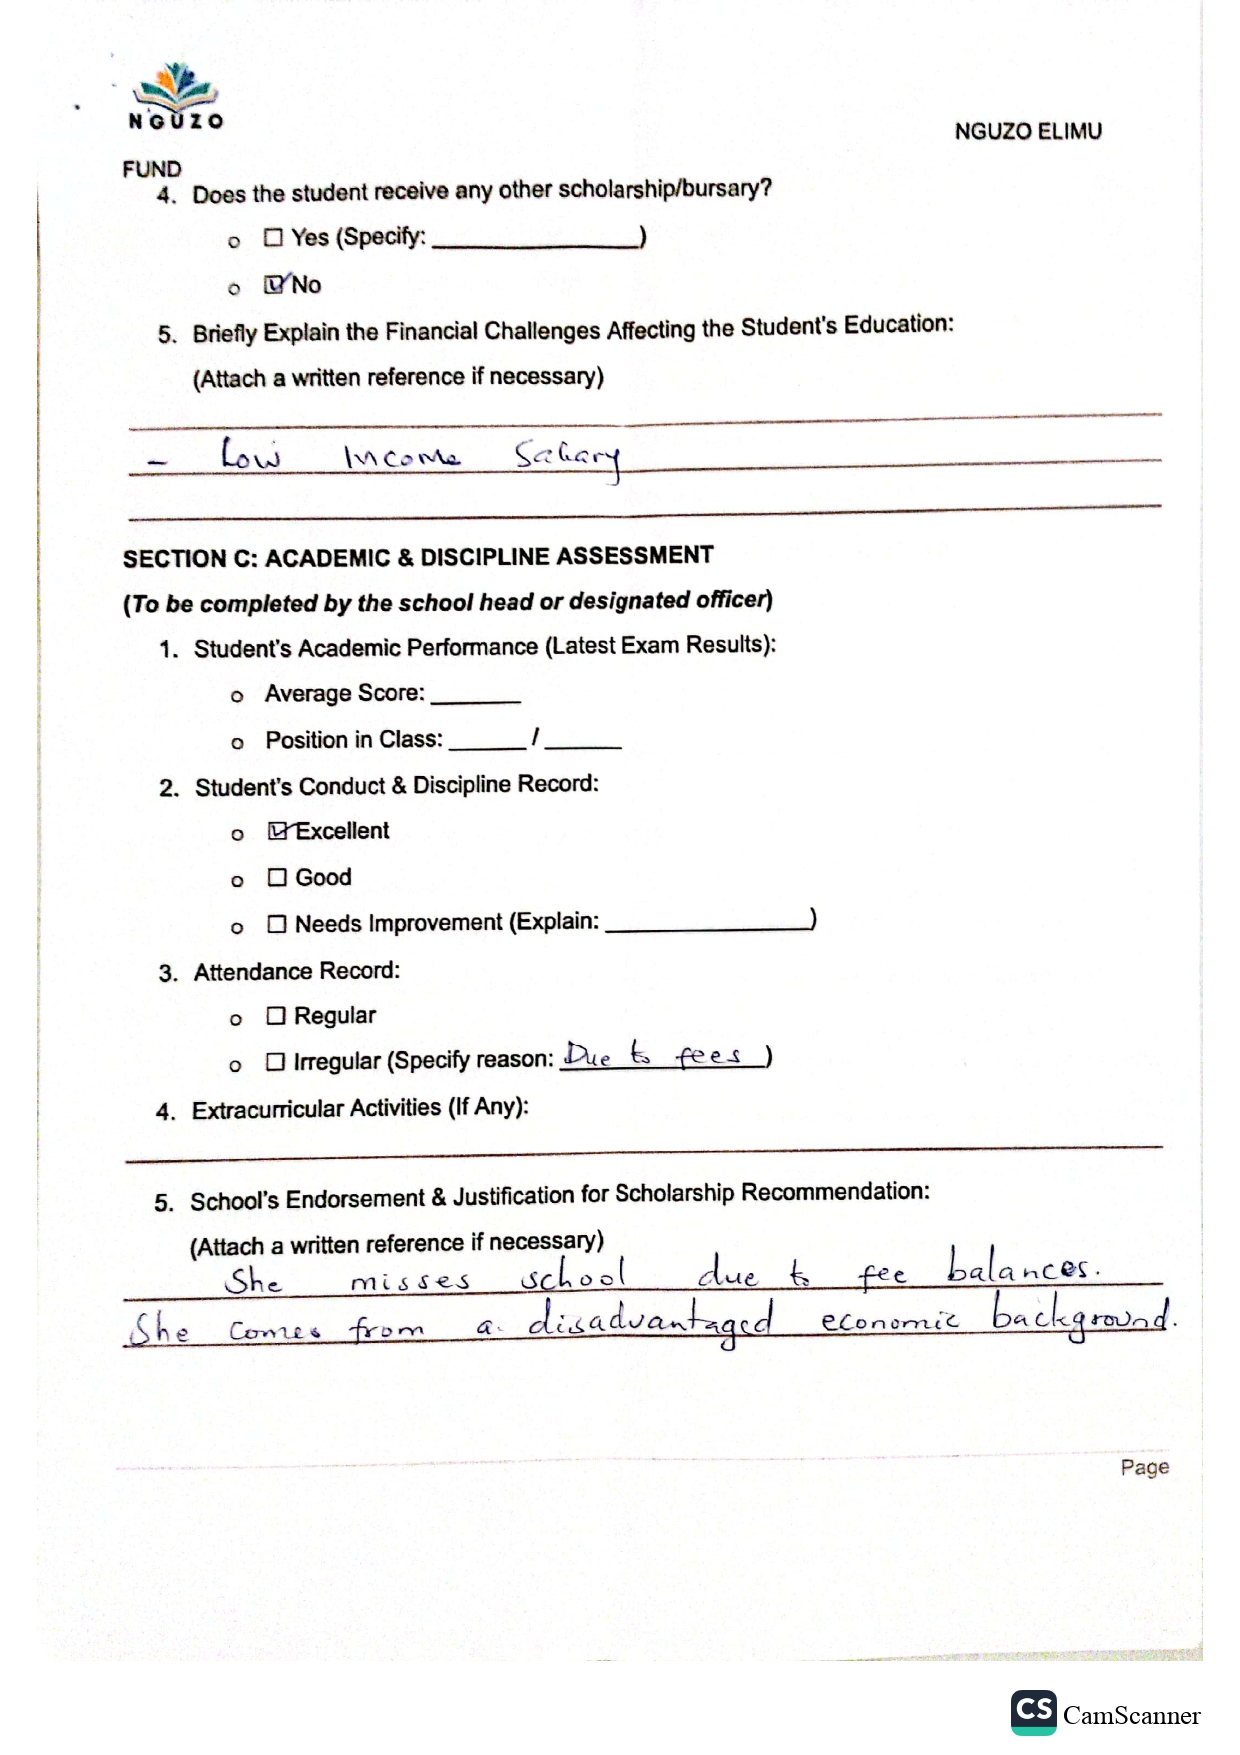 NGUZO
NGUZO ELIMU
FUND
4. Does the student receive any other scholarship/bursary?
o ☐ Yes (Specify: ______________)
o ☑ No
5. Briefly Explain the Financial Challenges Affecting the Student's Education:
(Attach a written reference if necessary)
- Low Income Salary
SECTION C: ACADEMIC & DISCIPLINE ASSESSMENT
(To be completed by the school head or designated officer)
1. Student's Academic Performance (Latest Exam Results):
o Average Score: ______
o Position in Class: _____ / _____
2. Student's Conduct & Discipline Record:
o ☑ Excellent
o ☐ Good
o ☐ Needs Improvement (Explain: ______________)
3. Attendance Record:
o ☐ Regular
o ☐ Irregular (Specify reason: Due to fees)
4. Extracurricular Activities (If Any):
5. School's Endorsement & Justification for Scholarship Recommendation:
(Attach a written reference if necessary)
She misses school due to fee balances.
She comes from a disadvantaged economic background.
Page
CS CamScanner